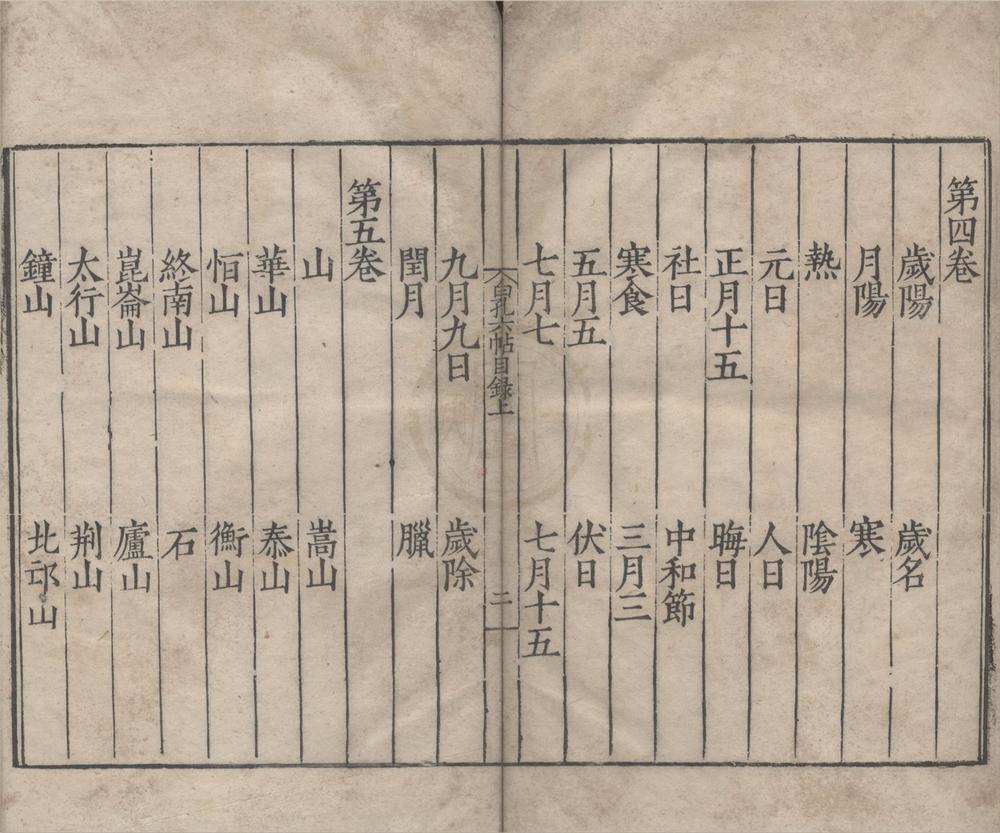 第四卷
歲陽 歲名
月陽 寒
熱 陰陽
元日 人日
正月十五 晦日
社日 中和節
寒食 三月三
五月五 伏日
七月七 七月十五
白孔六帖目録上 二
九月九日 歲除
閏月 臘
第五卷
山 嵩山
華山 泰山
恒山 衡山
終南山 石
崑崙山 廬山
太行山 荆山
鐘山 北邙山